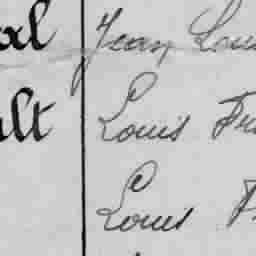 al Jean Lou
ult Louis Fr
Louis F